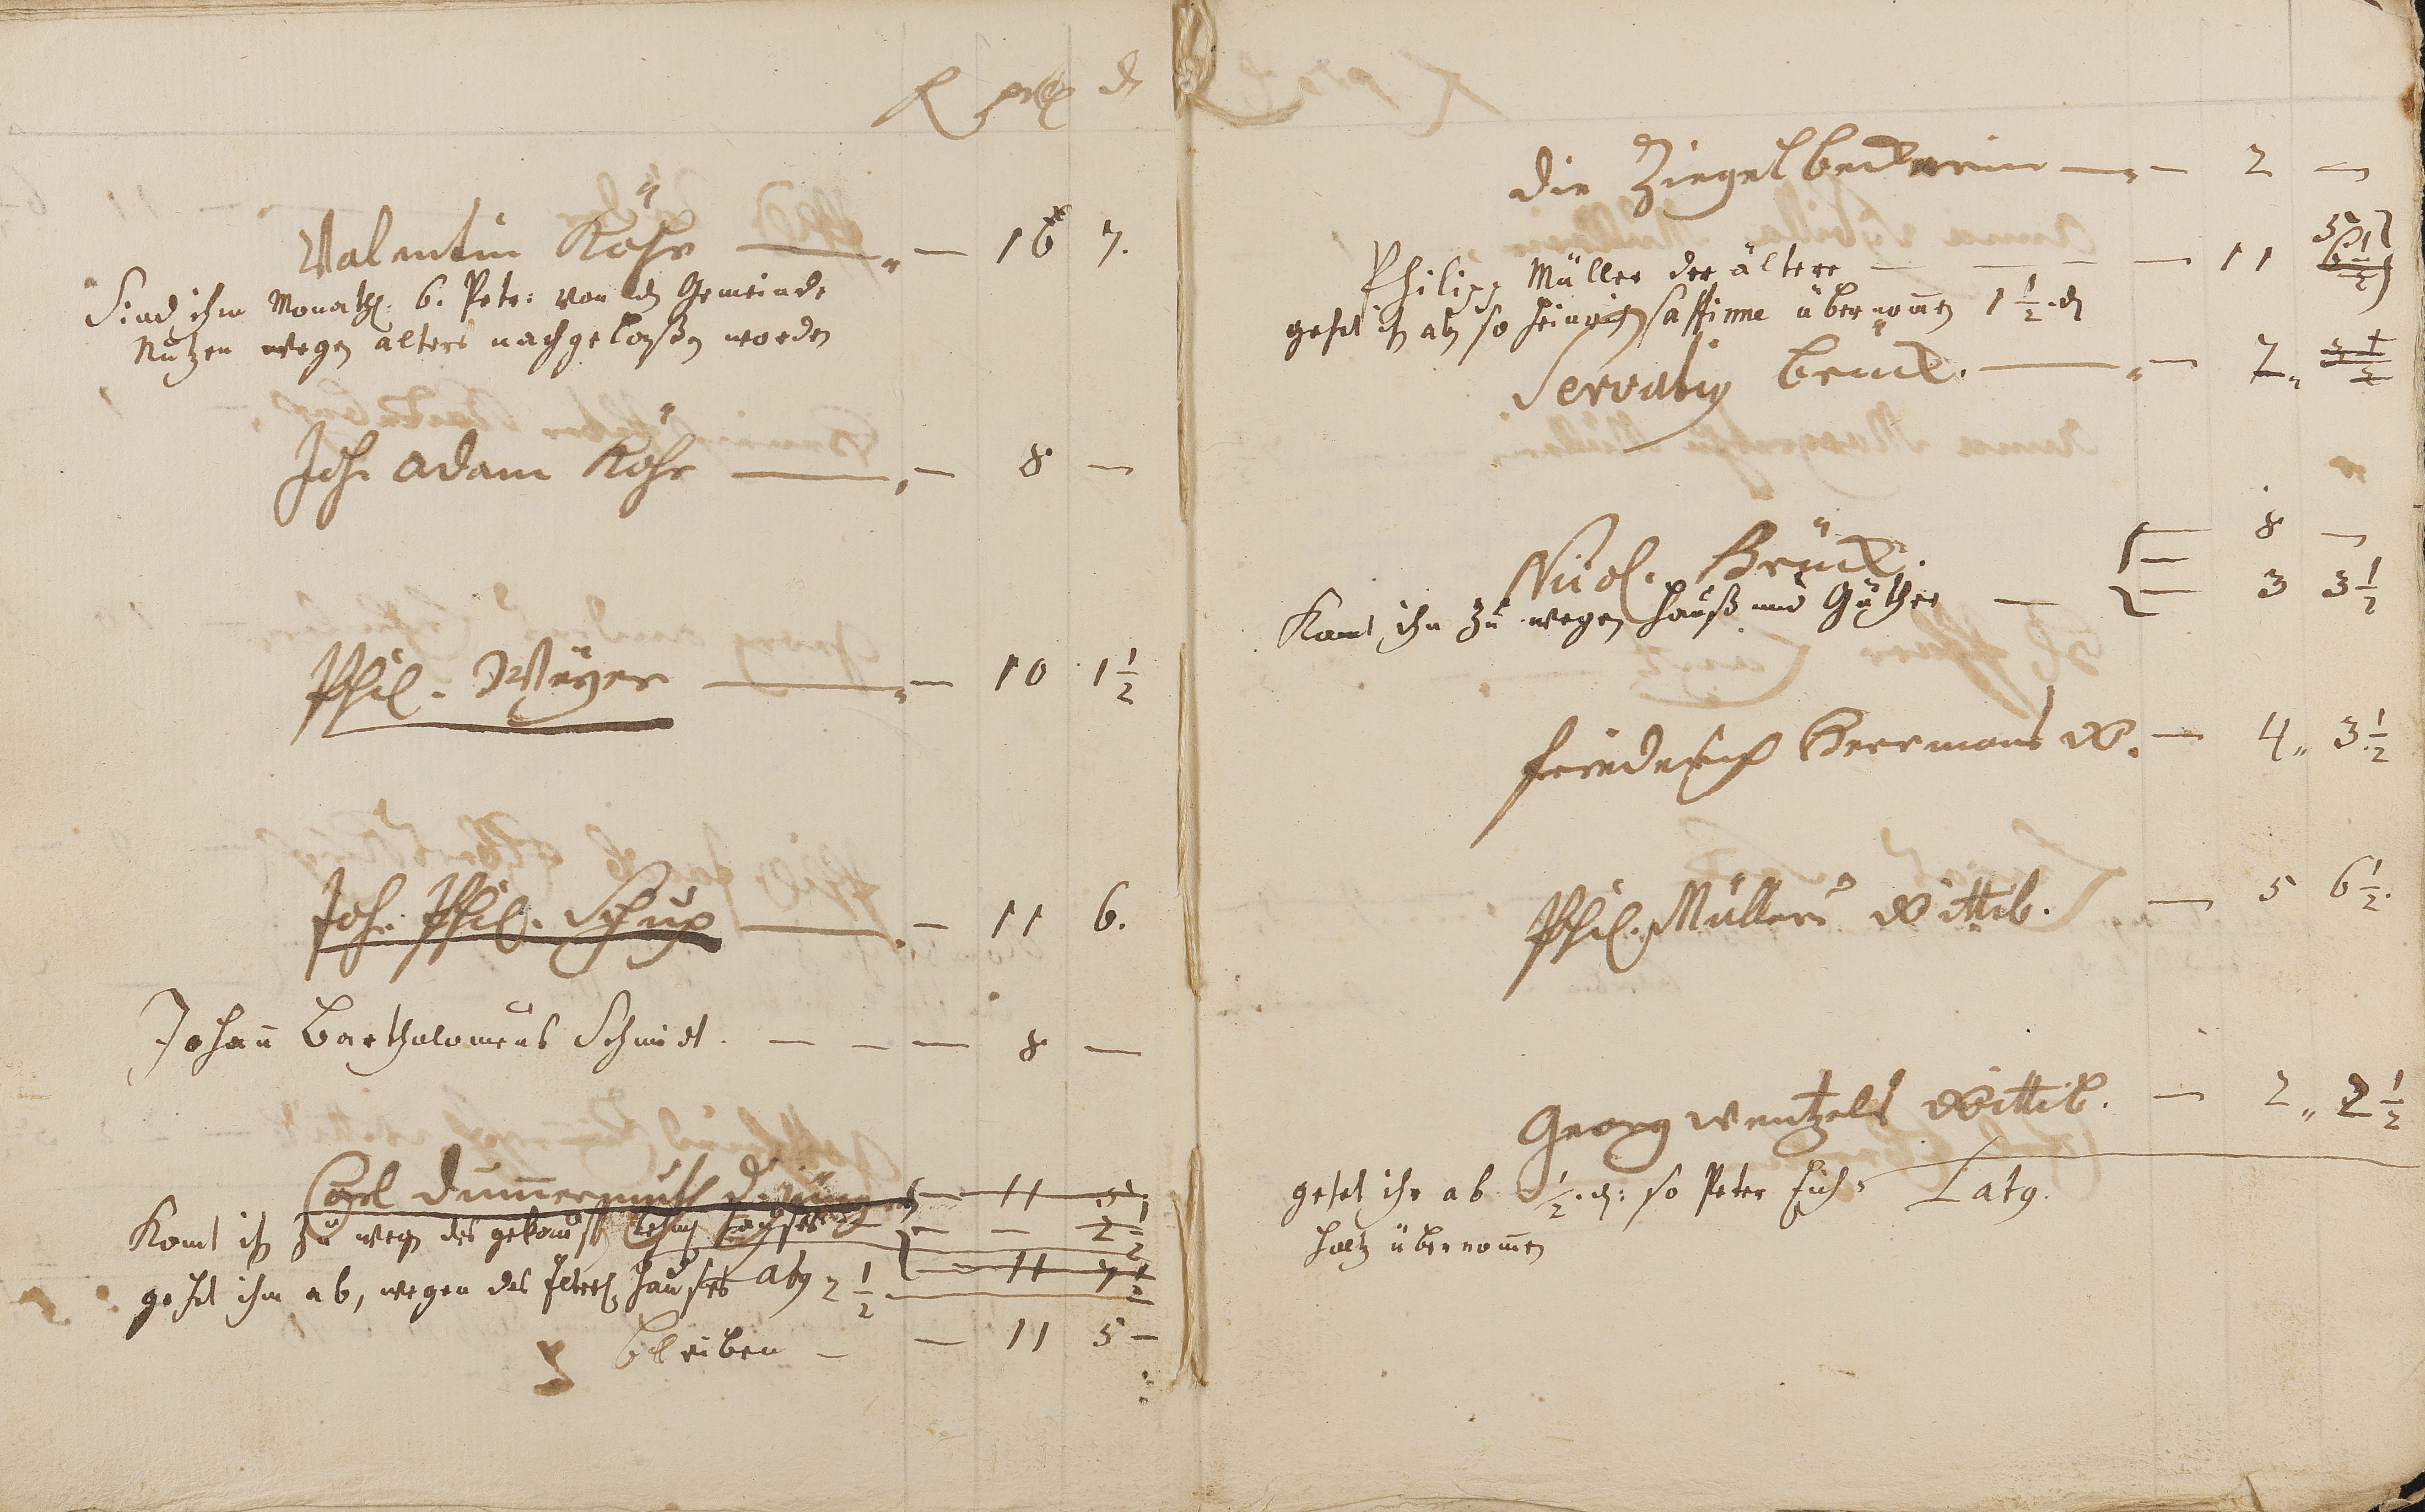 Valentin Röhr — „ — 16 7.
Sind ihm Monathl. 6. Petr: von d Gemeinde
Nutzen wegen alters nachgelaßen worden
Joh. Adam Röhr — „ — 8 —
Phil. Meyer — „ — 10 1 1/2
Joh. Phil. Schup — „ — 11 6.
Johann Bartholomeus Schmidt. — — — 8 —
Carl Dummermuth d. jüng — 11 5
Komt ih zu wegen des gekauft — — 2 1/2
— 11 7 1/2
gehet ihm ab, wegen des Hauses 2 1/2
bleiben — — 11 5 —
die Ziegelbeckerin — „ — 2 —
Philipp Müller der ältere — — — — 11 5
gehet ih ab so übernomen 1 1/2 d
Servatiq Brück. — „ — 7 „ 3 1/2
Nicol. Brück. — 8 —
Komt ihm zu wegen Hauß und Güther — — 3 3 1/2
Friederich Herrmans W. — 4 „ 3 1/2
Phil. Müllers Wittib. — 5 6 1/2.
Georg Wentzels Wittib. — 2 „ 2 1/2
gehet ihr ab 1/2 d: so Peter Latq.
Holtz übernomen